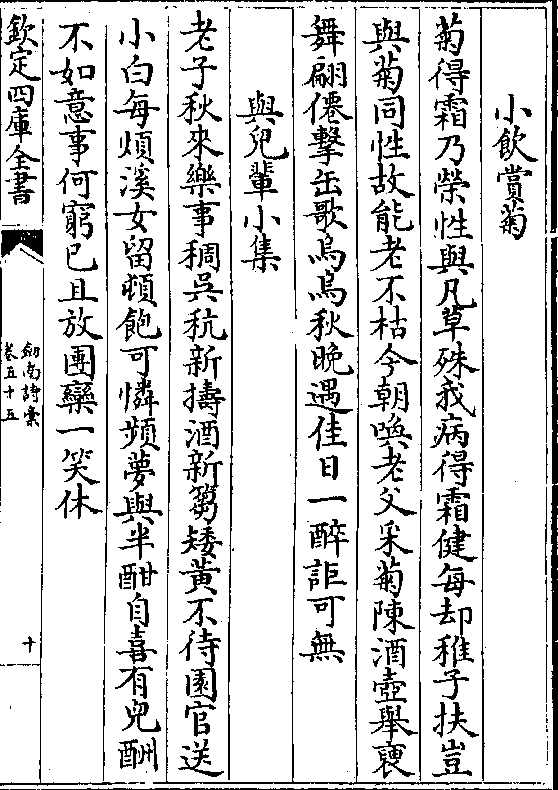 小飲賞菊
菊得霜乃榮性與凡草殊我病得霜健每却稚子扶豈
與菊同性故能老不枯今朝喚老父采菊陳酒壺舉褏
舞翩僊擊缶歌烏烏秋晚遇佳日一醉詎可無
與兒輩小集
老子秋來樂事稠吳秔新擣酒新篘矮黃不待園官送
小白每煩溪女留頓飽可憐頻夢與半酣自喜有兒酬
不如意事何窮已且放團欒一笑休
欽定四庫全書
劒南詩稾
卷五十五
十